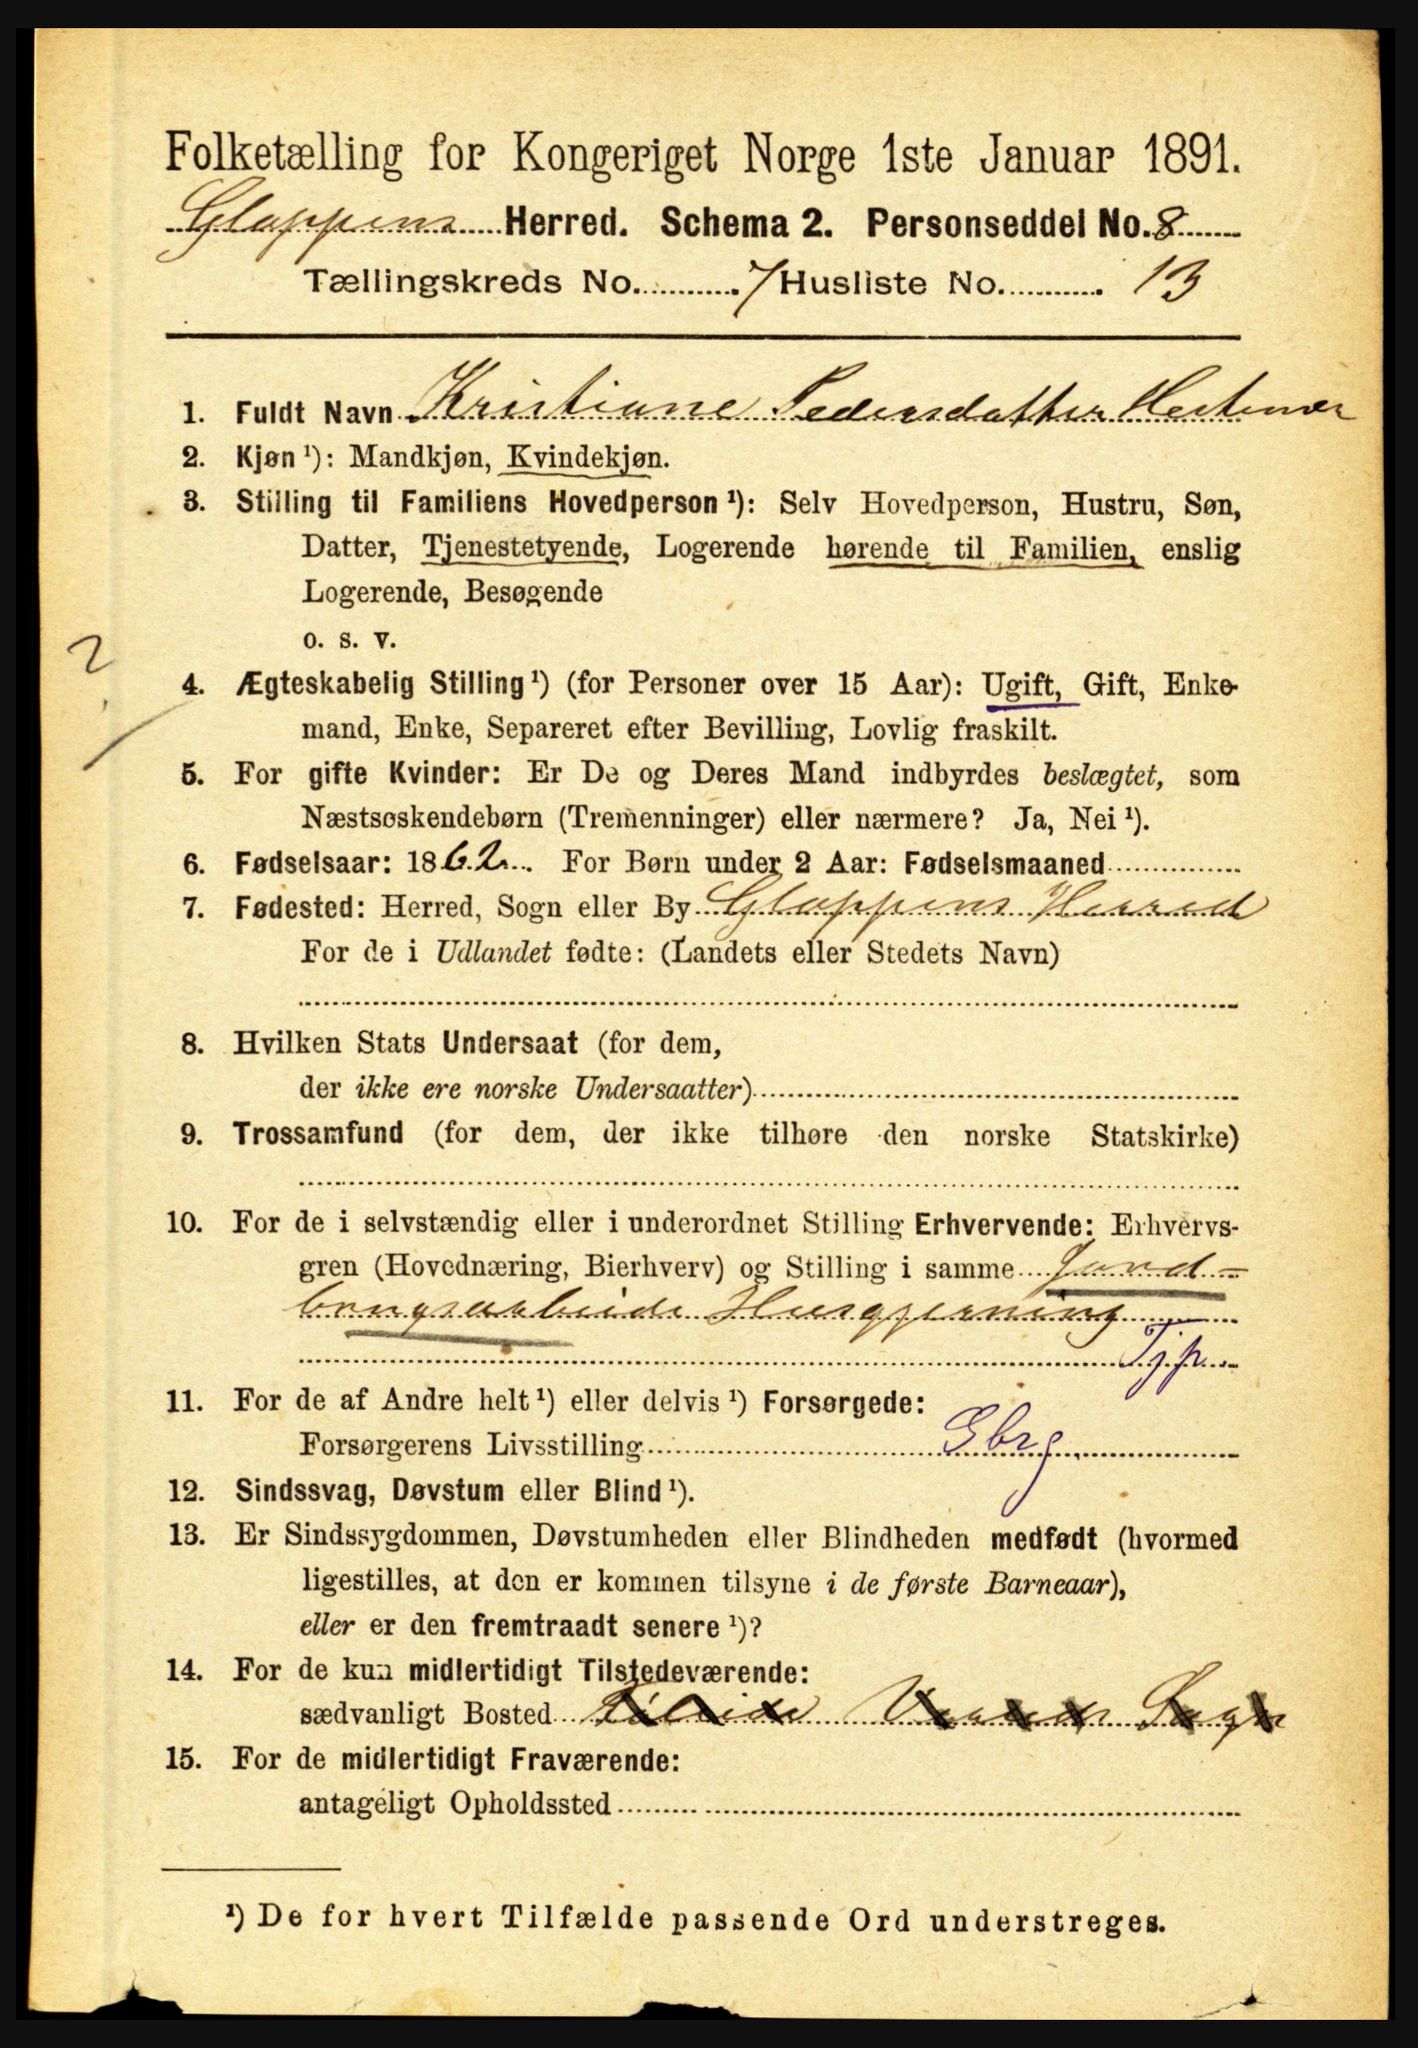 Folketælling for Kongeriget Norge 1ste Januar 1891.
Gloppens Herred. Schema 2. Personseddel No. 8
Tællingskreds No. 7 Husliste No. 13
1. Fuldt Navn Kristiane Pedersdatter
2. Kjøn ¹): Mandkjøn, Kvindekjøn.
3. Stilling til Familiens Hovedperson ¹): Selv Hovedperson, Hustru, Søn,
Datter, Tjenestetyende, Logerende hørende til Familien, enslig
Logerende, Besøgende
o. s. v.
2
4. Ægteskabelig Stilling ¹) (for Personer over 15 Aar): Ugift, Gift, Enke-
mand, Enke, Separeret efter Bevilling, Lovlig fraskilt.
5. For gifte Kvinder: Er De og Deres Mand indbyrdes beslægtet, som
Næstsøskendebørn (Tremenninger) eller nærmere? Ja, Nei ¹).
6. Fødselsaar: 1862. For Børn under 2 Aar: Fødselsmaaned
7. Fødested: Herred, Sogn eller By Gloppens Herred
For de i Udlandet fødte: (Landets eller Stedets Navn)
8. Hvilken Stats Undersaat (for dem,
der ikke ere norske Undersaatter)
9. Trossamfund (for dem, der ikke tilhøre den norske Statskirke)
10. For de i selvstændig eller i underordnet Stilling Erhvervende: Erhvervs-
gren (Hovednæring, Bierhverv) og Stilling i samme Jord-
brugsarbeide Husgjerning
Tjp.
11. For de af Andre helt ¹) eller delvis ¹) Forsørgede:
Forsørgerens Livsstilling Gbrg.
12. Sindssvag, Døvstum eller Blind ¹).
13. Er Sindssygdommen, Døvstumheden eller Blindheden medfødt (hvormed
ligestilles, at den er kommen tilsyne i de første Barneaar),
eller er den fremtraadt senere ¹)?
14. For de kun midlertidigt Tilstedeværende:
sædvanligt Bosted
15. For de midlertidigt Fraværende:
antageligt Opholdssted
¹) De for hvert Tilfælde passende Ord understreges.